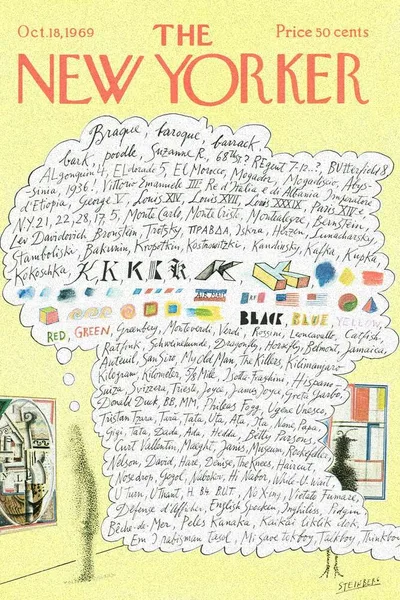 Oct. 18, 1969
THE
Price 50 cents
NEW YORKER
Braque, baroque, barrack,
bark, poodle, Suzanne R., 68th? Regent 7-12..?, Butterfield 8
Algonquin 4, Eldorado 5, El Morocco, Mogador, Mogadiscio, Abys-
sinia, 1936! Vittorio Emanuele III Re d'Italia e di Albania Imperatore
d'Etiopia, George V, Louis XIV, Louis XVII, Louis XXXIX, Paris XIVe
N.Y. 21, 22, 28, 17, 5, Monte Carlo, Monte Cristi, Montenegro, Bernstein
Lev Davidovich Bronstein, Trotsky, ПРАВДА, Iskra, Herzen, Lunacharsky,
Stamboliski, Bakunin, Kropotkin, Kostrowitzki, Kandinsky, Kafka, Kupka,
Kokoschka, K, K, K K K K
AIR MAIL
BLACK, BLUE, YELLOW,
RED, GREEN, Greenberg, Monteverdi, Verdi, Rossini, Leoncavallo, Catfish,
Ratfink, Schweinehunde, Dragonfly, Horsefly, Belmont, Jamaica,
Auteuil, San Siro, My Old Man, The Killers, Kilimanjaro
Kilogram, Kilometer, 5/8 Mile, Isotta-Fraschini, Hispano-
Suiza, Svizzera, Trieste, Joyce, James Joyce, Greta Garbo,
Donald Duck, BB, MM, Phileas Fogg, Eugene Ionesco,
Tristan Tzara, Tara, Tata, Uta, Ata, Itta, Nona, Papa,
Gigi, Tati, Dada, Ada, Hedda, Betty Parsons,
Curt Valentin, Maeght, Janis, Museum, Rockefeller,
Nelson, David, Hare, Denise, the Knees, Haircut,
Nosedrop, Gogol, Nabokov, Hi Nabor, While-U-wait,
U Turn, U Thant, H. 84. BUT. No Xing, Vietato Fumare,
Défense d'Afficher, English Spoken, Inglilees, Pidgin
Bêche-de-Mer, Peles Kanaka, Kaikai liklik dok,
Em I rabisman tasol, Mi save tokboy, Talkboy, Thinkboy
STEINBERG